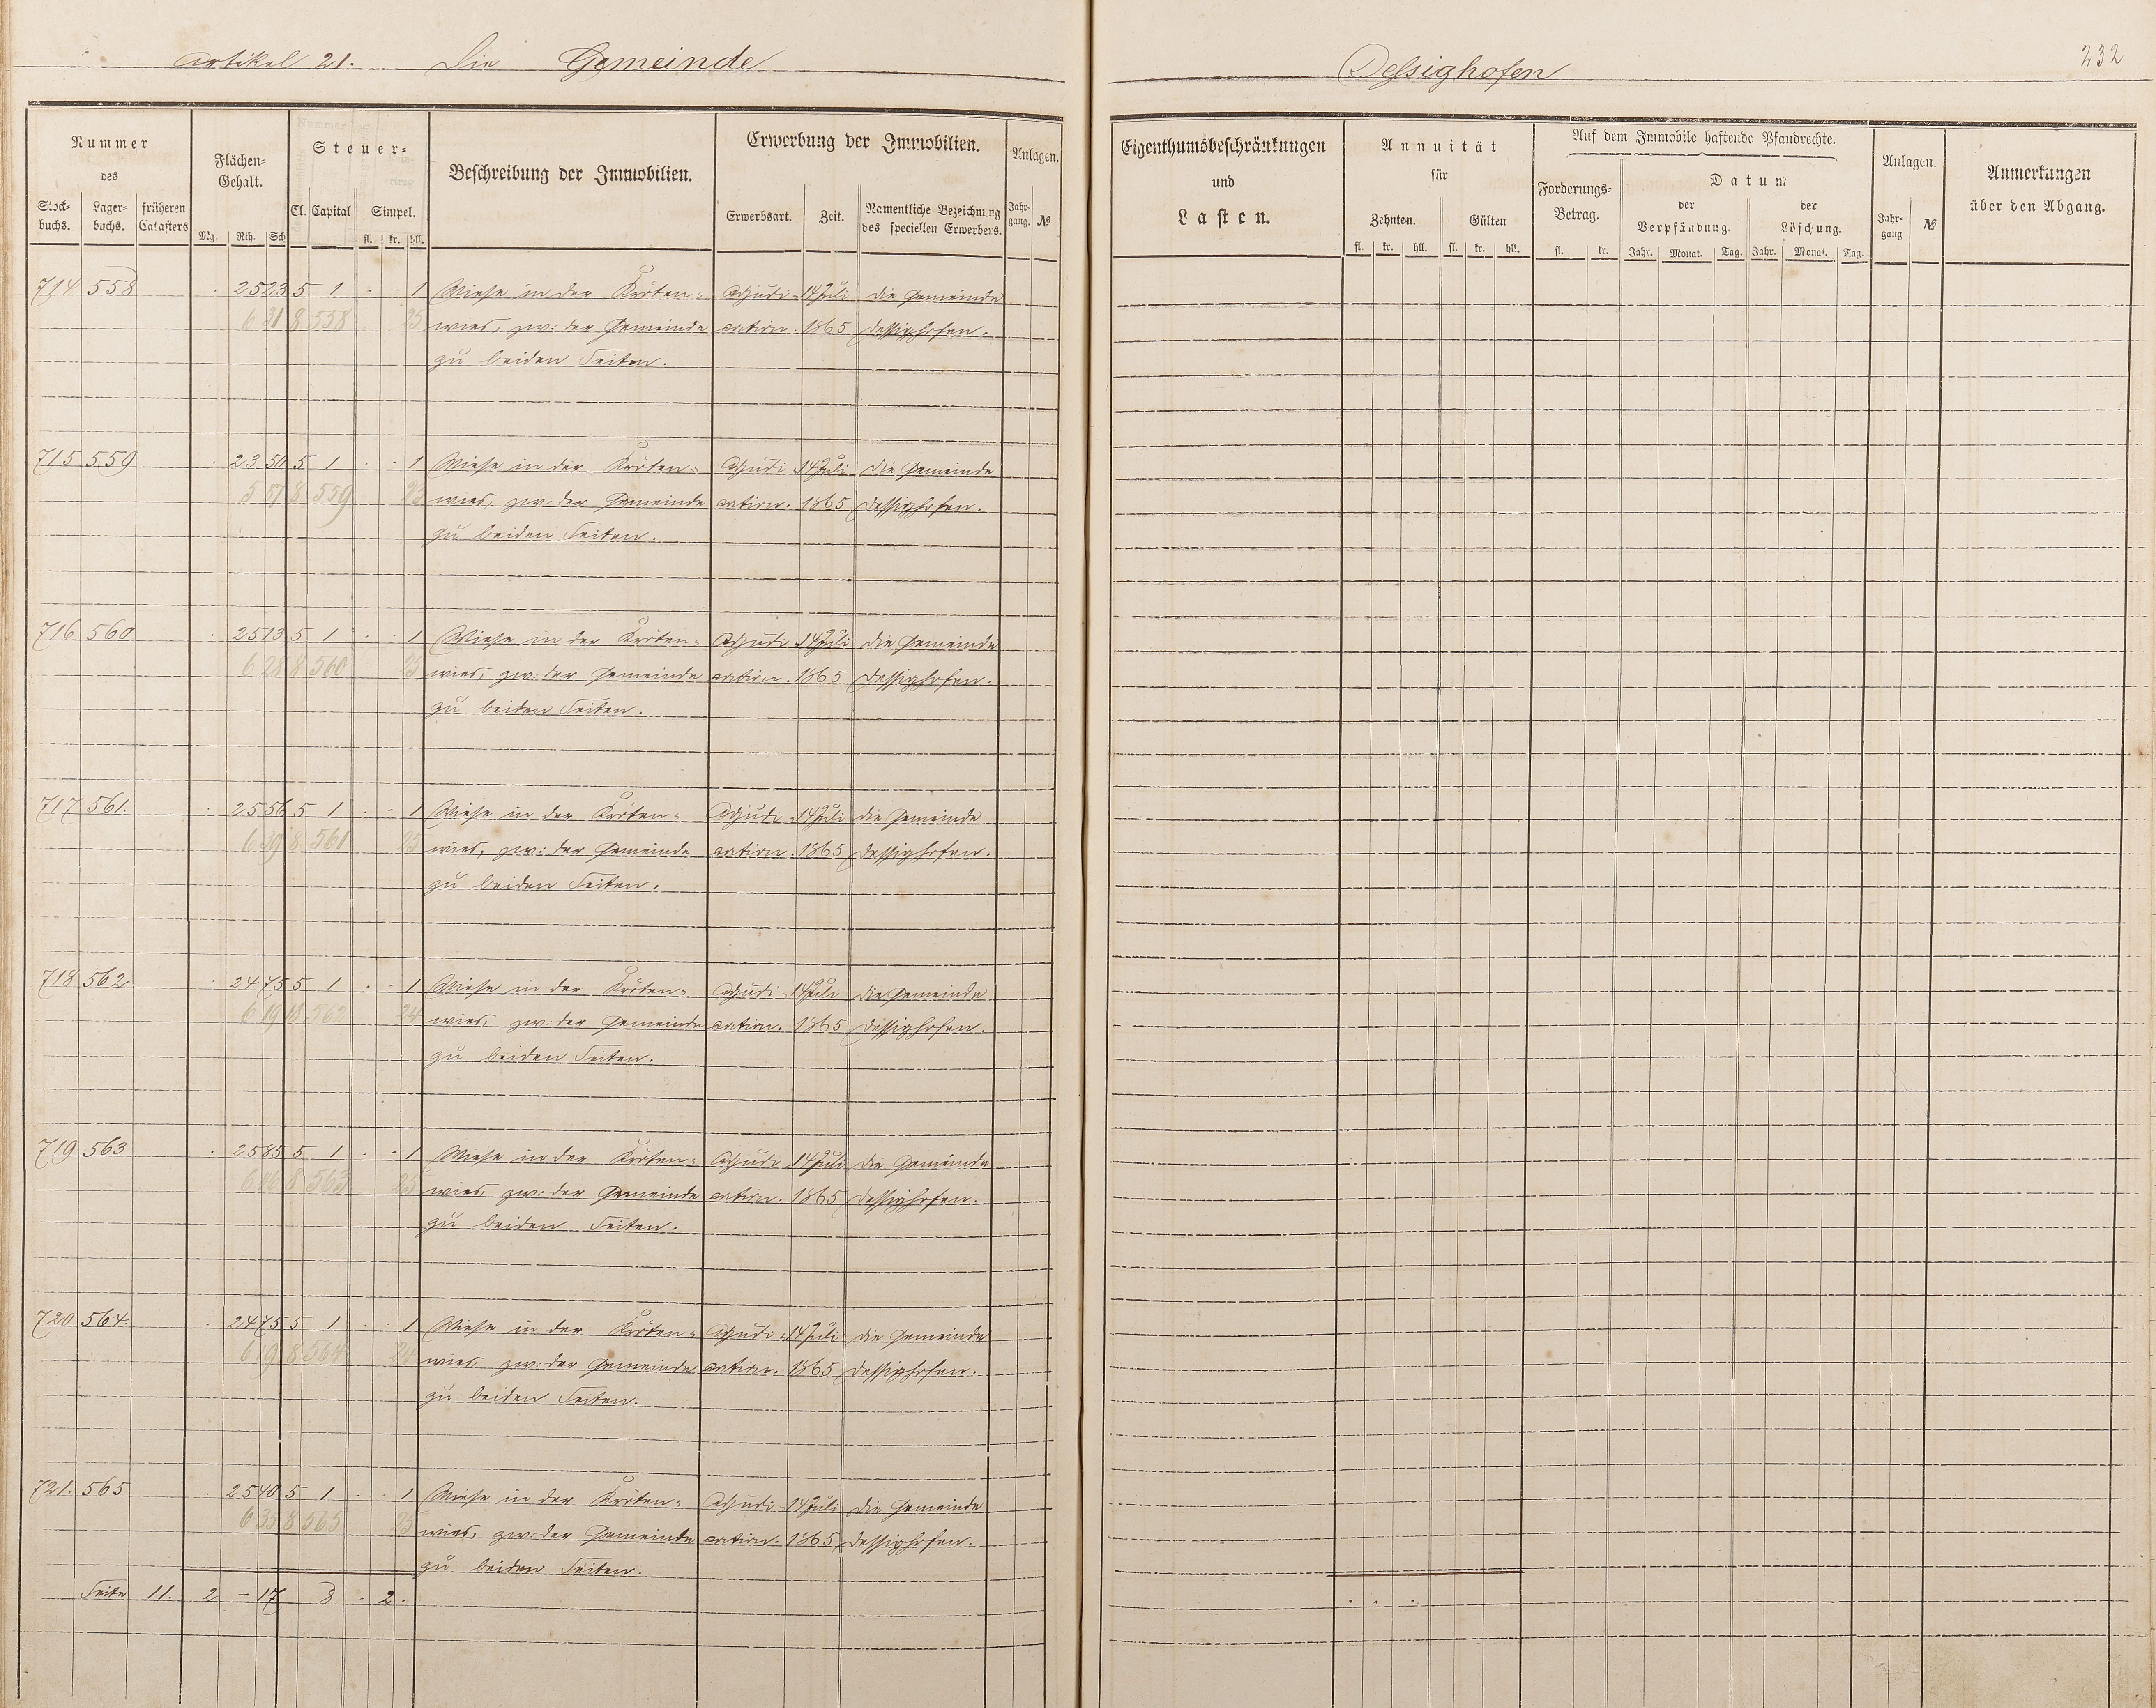 Artikel 21. Die Gemeinde Dessighofen 232
Nummer des
Stock-buchs. Lager-buchs. früheren Catasters
Flächen-Gehalt.
Mg. Rth. Sch
Steuer-
Cl. Capital Simpel.
fl. kr. hll.
Beschreibung der Immobilien.
Erwerbung der Immobilien.
Erwerbsart. Zeit. Namentliche Bezeichnung des speciellen Erwerbers.
Anlagen.
Jahr-gang. №
Eigenthumsbeschränkungen und Lasten.
Annuität für
Zehnten. Gülten
fl. kr. hll. fl. kr. hll.
Auf dem Immobile haftende Pfandrechte.
Forderungs-Betrag.
fl. kr.
Datum
der Verpfändung. der Löschung.
Jahr. Monat. Tag. Jahr. Monat. Tag.
Anlagen.
Jahr-gang №
Anmerkungen über den Abgang.
714 558 . 25 23 5 1 . - 1 Wiese in der Kröten= Adjudi= 14 Juli die Gemeinde
6 31 8 558 25 wies, zw: der Gemeinde cation. 1865 Dessighofen.
zu beiden Seiten.
715 559 . 23 50 5 1 . - 1 Wiese in der Kröten= Adjudi= 14 Juli die Gemeinde
5 87 8 559 23 wies, zw: der Gemeinde cation. 1865 Dessighofen.
zu beiden Seiten.
716 560 . 25 13 5 1 . . 1 Wiese in der Kröten= Adjudi= 14 Juli die Gemeinde
6 28 8 560 25 wies, zw: der Gemeinde cation. 1865 Dessighofen.
zu beiden Seiten.
717 561. . 25 56 5 1 . - 1 Wiese in der Kröten= Adjudi= 14 Juli die Gemeinde
6 39 8 561 25 wies, zw: der Gemeinde cation. 1865 Dessighofen.
zu beiden Seiten.
718 562 . 24 75 5 1 . - 1 Wiese in der Kröten= Adjudi= 14 Juli die Gemeinde
6 19 8 562 24 wies, zw: der Gemeinde cation. 1865 Dessighofen.
zu beiden Seiten.
719 563 . 25 85 5 1 . - 1 Wiese in der Kröten= Adjudi= 14 Juli die Gemeinde
6 46 8 563 25 wies, zw: der Gemeinde cation. 1865 Dessighofen.
zu beiden Seiten.
720 564. . 24 75 5 1 . . 1 Wiese in der Kröten= Adjudi= 14 Juli die Gemeinde
6 19 8 564 24 wies, zw: der Gemeinde cation. 1865 Dessighofen.
zu beiden Seiten.
721. 565 . 25 40 5 1 . . 1 Wiese in der Kröten= Adjudi= 14 Juli die Gemeinde
6 35 8 565 25 wies, zw: der Gemeinde cation. 1865 Dessighofen.
zu beiden Seiten.
Seite 11. 2 - 17 8 . 2 . . . .